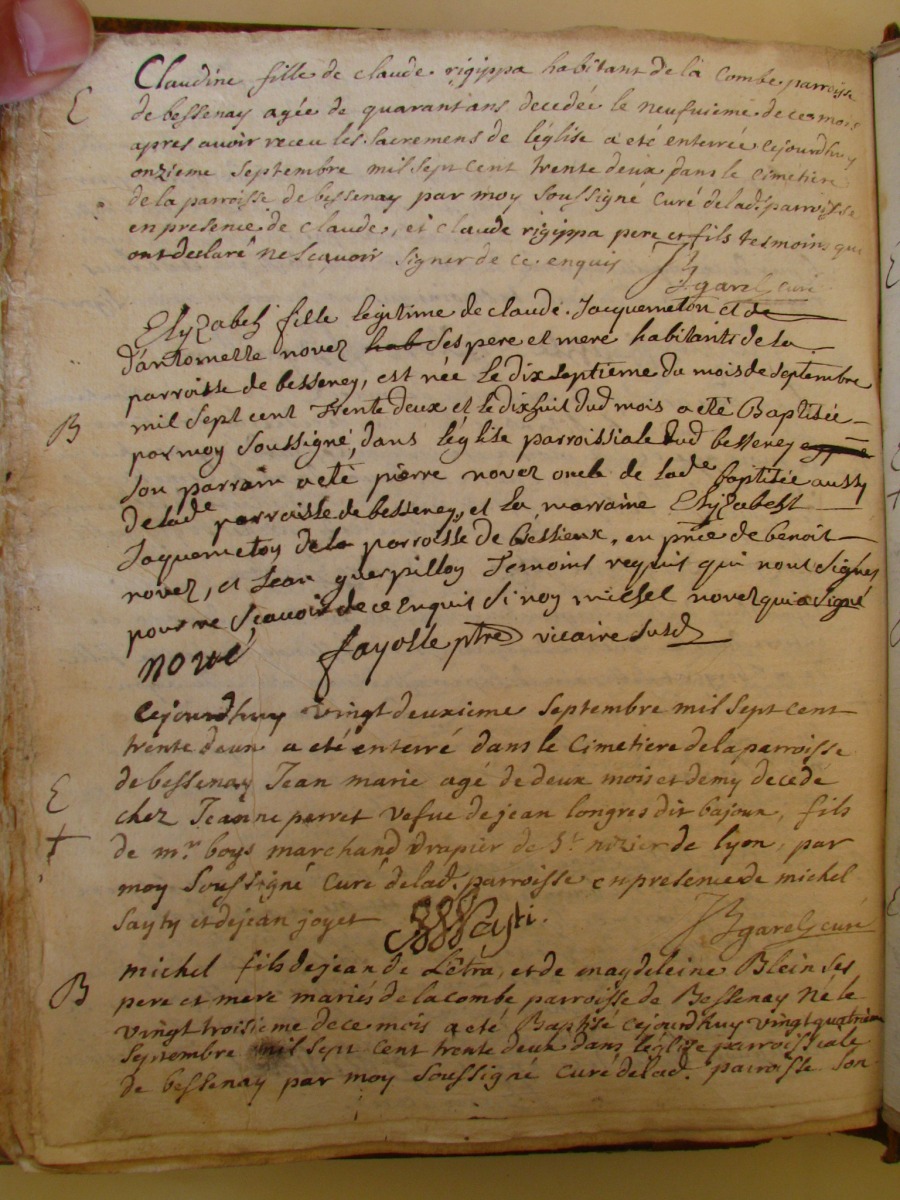 Claudine fille de claude rigippa habitant de la Combe parroisse
E
de bessenay agée de quarant ans decedée le neufuieme de ce mois
apres auoir receu les Sacremens de léglise a eté enterrée cejourdhuy
onzieme Septembre mil Sept cent trente deux dans le Cimetiere
de la parroisse de bessenay par moy Soussigné Curé de lad. parroisse
en presence de claude, et claude rigippa pere et fils tesmoins qui
ont declaré ne Scauoir Signer de ce enquis
JBgarel curé
Elyzabeh fille légitime de claude Jacquemeton et de
d'antoinette nover hab Ses pere et mere habitants de la
parroisse de besseney, est née Le dix Septieme du mois de Septembre
mil Sept cent Trente deux et le dixhuit dud mois a eté Baptisée
B
par moy Soussigné, dans l'église parroissiale dud besseney
Son parrain a eté pierre nover oncle de lade baptisée aussy
de lade parroisse de besseney, et La marraine Elyzabeht
Jaquemeton de la parroisse de Bessieux, en pnce de benoit
nover, et Jean guerpillon Temoins requis qui n'ont Signés
pour ne Scauoir de ce enquis Si noy michel nover qui a Signé
nové fayolle ptre vicaire Susd
Cejourdhuy vingt deuxieme Septembre mil Sept cent
trente deux a eté enterré dans le Cimetiere de la parroisse
de bessenay Jean marie agé de deux mois et demy decedé
E
chez Jeanne perret vefue de jean longres dit bajoun, fils
+
de mr. boys marchand drapier de St. nizier de lyon, par
moy Soussigné Curé de lad. parroisse en presence de michel
Sayty et de jean joyet Sayti. JBgarel curé
michel fils de jean de Létra, et de magdeleine Blein Ses
B
pere et mere mariés de la combe parroisse de Bessenay né le
vingt troisieme de ce mois a eté Baptisé cejourdhuy vingt quatrieme
Septembre mil Sept cent trente deux dans léglise parroissiale
de bessenay par moy Soussigné Curé de lad. parroisse Son